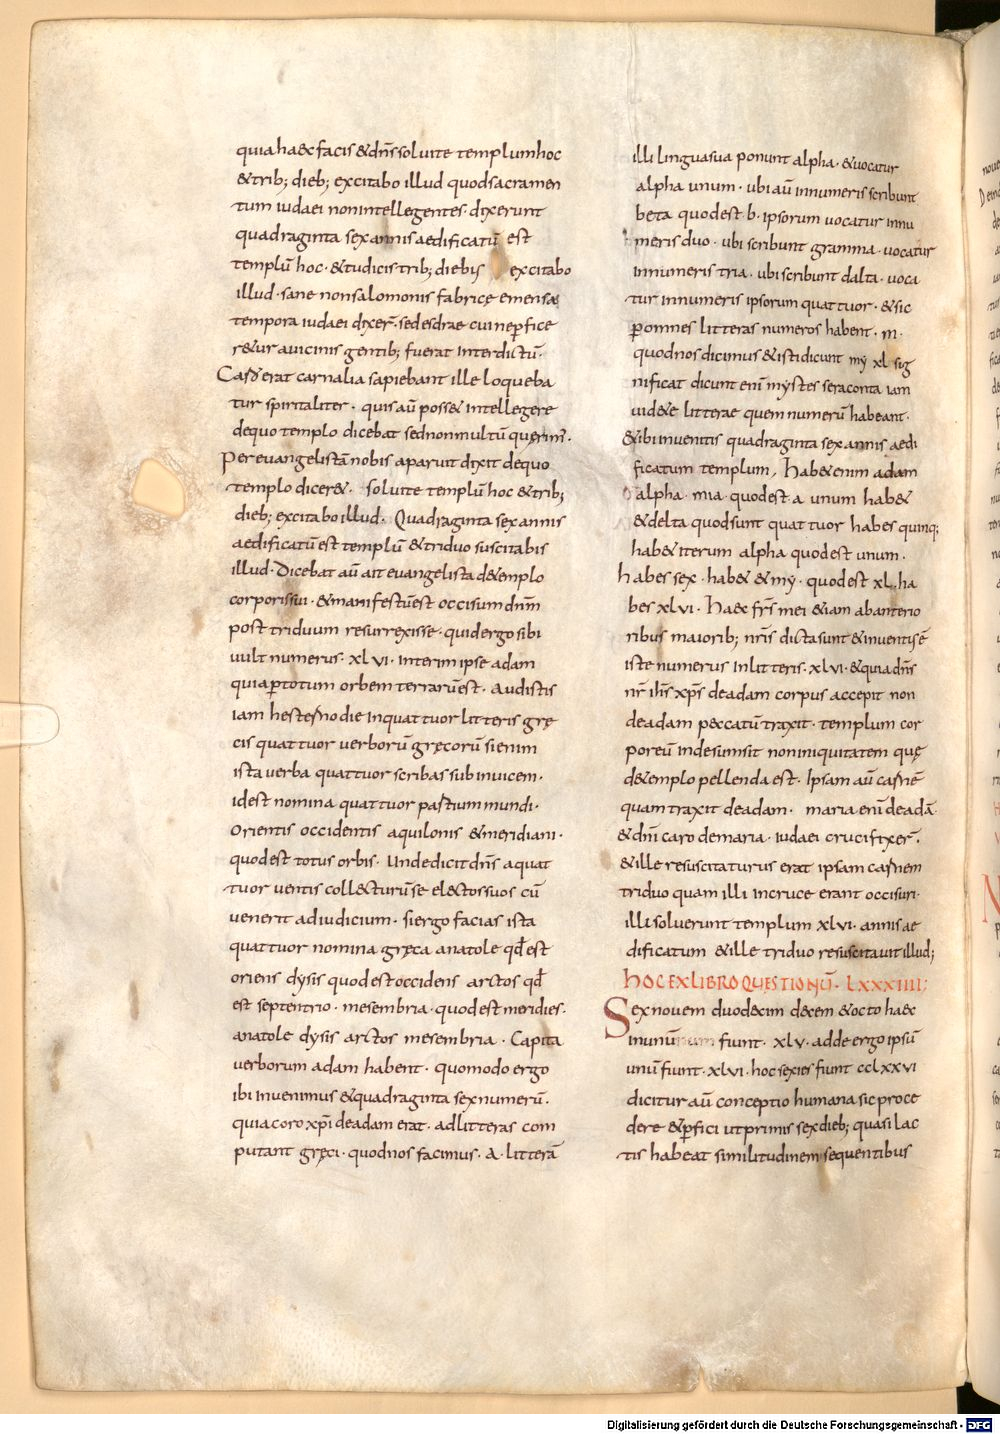 quia haec facis & dn̄s soluite templum hoc
& trib; dieb; excitabo illud quod sacramen
tum iudaei non intellegentes · dixerunt
quadraginta sex annis aedificatū est
templū hoc · & tu dicis trib; diebus excitabo
illud · sane non salomonis fabricę emensa
tempora iudaei dixer̄ · sed esdrae cui ne ꝑfice
r&ur a uicinis gentib; fuerat interdictū ·
erat carnalia sapiebant ille loqueba
tur spiritaliter · quis aū poss& intellegere
de quo templo dicebat sed non multū querim̄ ·
Per euangelistā nobis aparuit dixit de quo
templo dicer& · soluite templū hoc & trib;
dieb; excitabo illud · Quadraginta sex annis
aedificatū est templū & triduo suscitabis
illud · Dicebat aū ait euangelista de templo
corporis sui · & manifestū est occisum dnm̄
post triduum resurrexisse · quid ergo sibi
uult numerus · xlvi · interim ipse adam
quia ꝑ totum orbem terrarū est · Audistis
iam hesterno die in quattuor litteris grę
cis quattuor uerborū gręcorū si enim
ista uerba quattuor scribas sub inuicem ·
id est nomina quattuor partium mundi ·
Orientis occidentis aquilonis & meridiani ·
quod est totus orbis · Unde dicit dn̄s a quat
tuor uentis collecturū se electos suos cū
uenerit ad iudicium · si ergo facias ista
quattuor nomina gręca anatole qd̄ est
oriens dysis quod est occidens arctos qd̄
est septentrio · mesembria · quod est meridies ·
anatole dysis arctos mesembria · Capita
uerborum adam habent · quomodo ergo
ibi inuenimus & quadraginta sex numerū ·
quia coro xp̄i de adam erat · ad litteras com
putant gręci · quod nos facimus · A · litterā
illi lingua sua ponunt alpha · & uocatur
alpha unum · ubi aū in numeris scribunt
beta quod est b · ipsorum uocatur in nu
meris duo · ubi scribunt gramma · uocatur
in numeris tria · ubi scribunt dalta · uoca
tur in numeris ipsorum quattuor · & sic
ꝑ omnes litteras numeros habent · m ·
quod nos dicimus & isti dicunt my xl sig
nificat dicunt enī mystes seraconta iam
uid&e litterae quem numerū habeant ·
& ibi inuenitis quadraginta sex annis aedi
ficatum templum, Hab& enim adam
alpha · mia · quod est a unum hab&
& delta quod sunt quattuor habes quinq;
hab& iterum alpha quod est unum ·
habes sex · hab& & my · quod est xl · ha
bes xlvi · Haec frs̄ mei &iam ab anterio
ribus maiorib; nr̄is dicta sunt & inuentis ē
iste numerus in litteris · xlvi · & quia dn̄s
nr̄ ih̄s xp̄s de adam corpus accepit non
de adam peccatū traxit · templum cor
poreū inde sumsit non iniquitatem quę
de templo pellenda est · Ipsam aū carnē
quam traxit de adam · maria enī de adā ·
& dnī caro de maria · iudaei crucifixer̄ ·
& ille resuscitaturus erat ipsam carnem
triduo quam illi in cruce erant occisuri ·
illi soluerunt templum xlvi · annis ae
dificatum & ille triduo resuscitauit illud;
HOC EX LIBRO QUESTIONŪ · LXXXIIII;
Sex nouem duodecim decem & octo haec
in unū fiunt · xlv · adde ergo ipsū
unū fiunt · xlvi · hoc sexies fiunt cclxxvi
dicitur aū conceptio humana sic proce
dere & ꝑfici ut primis sex dieb; quasi lac
tis habeat similitudinem sequentibus
Digitalisierung gefördert durch die Deutsche Forschungsgemeinschaft - DFG